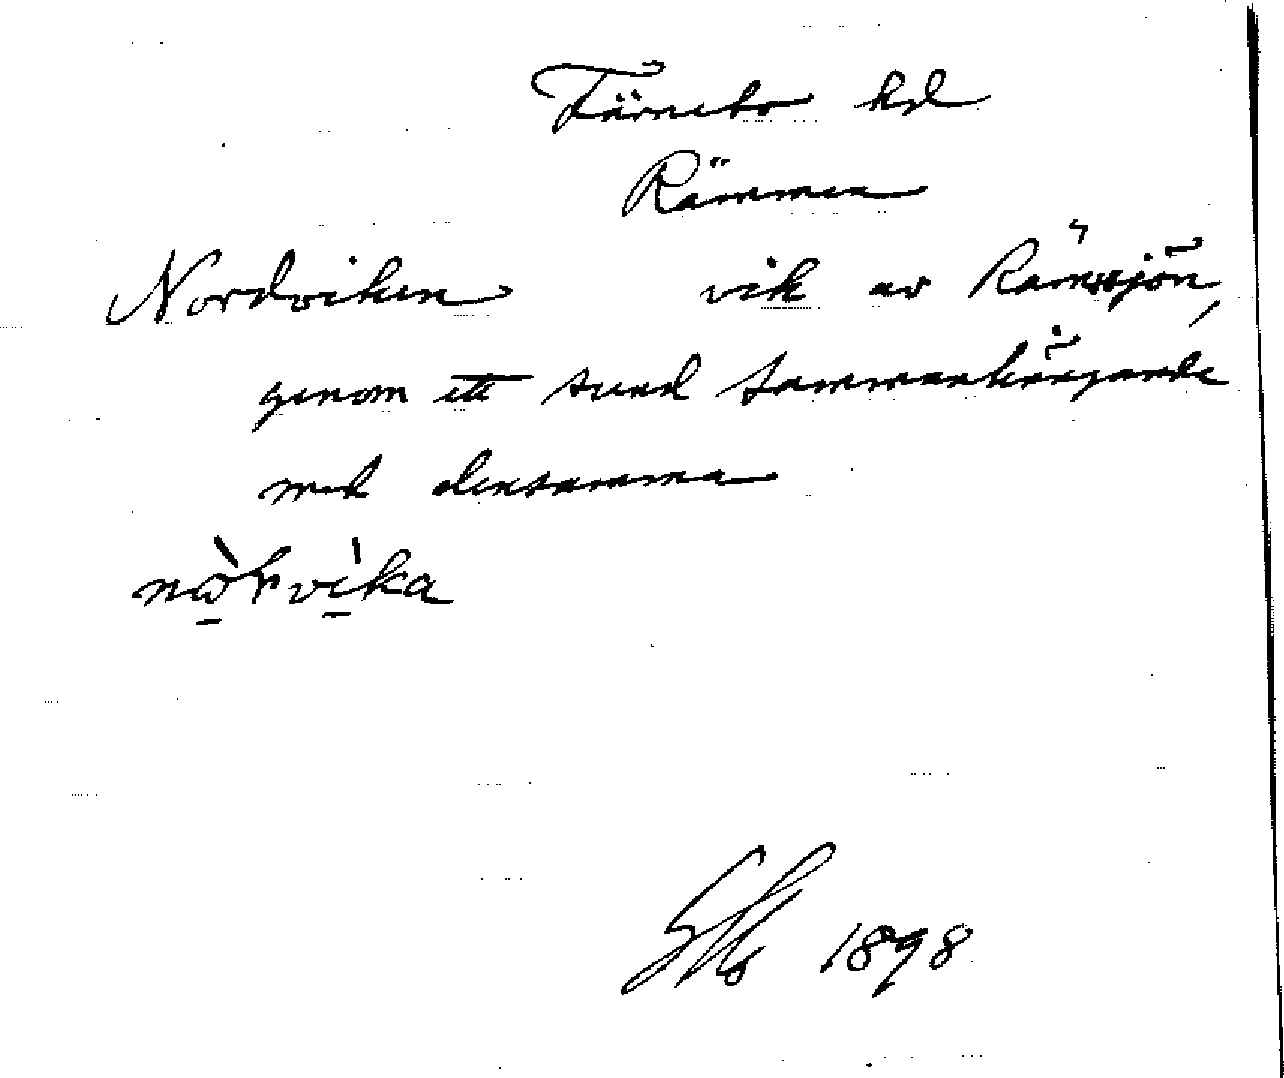 Färnebo hd
Rämmen
Nordviken vik av Rämsjön,
genom ett sund sammanhängande
med densamma
1898